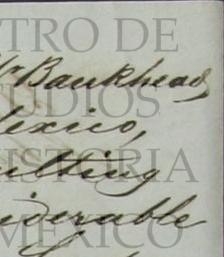 TRO DE
Mr Bankhead
TUDIOS
Mexico,
ulting
HISTORIA
iderable
MEXICO